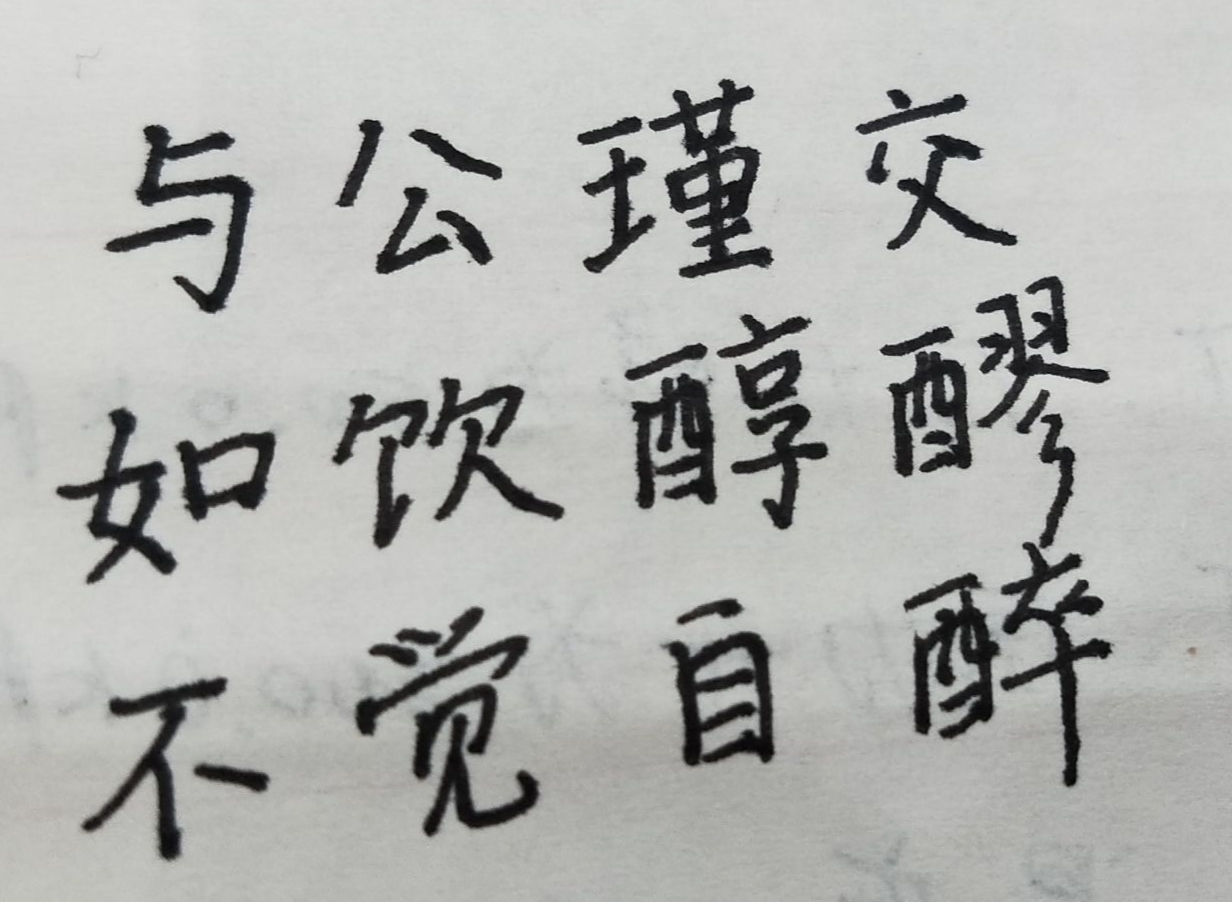 与公瑾交
如饮醇醪
不觉自醉